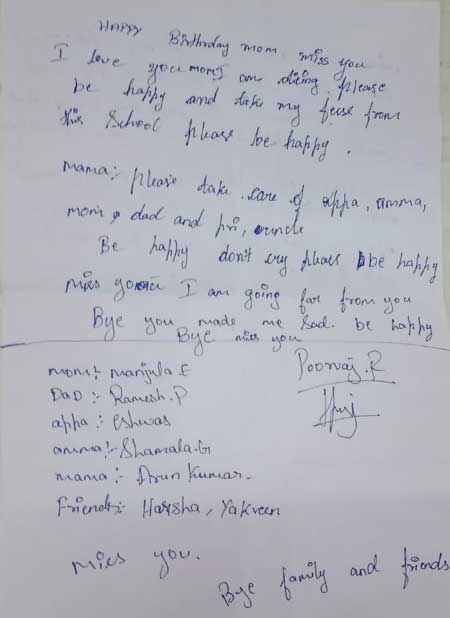 HAPPY Birthday mom miss you
I love you mom, I am dieing please
be happy and take my feese from
this School please be happy.
mama:- please take care of appa, amma,
mom, dad and pri, uncle
Be happy don't cry please be happy
miss you I am going far from you
Bye you made me sad. be happy
Bye miss you
mom:- manjula.E
DaD:- Ramesh.P
appa:- eshwas
amma:- Shamala.G
mama:- Arun Kumar.
Friends:- Harsha, Yakveen
Poorvaj.R
miss you.
Bye family and friends